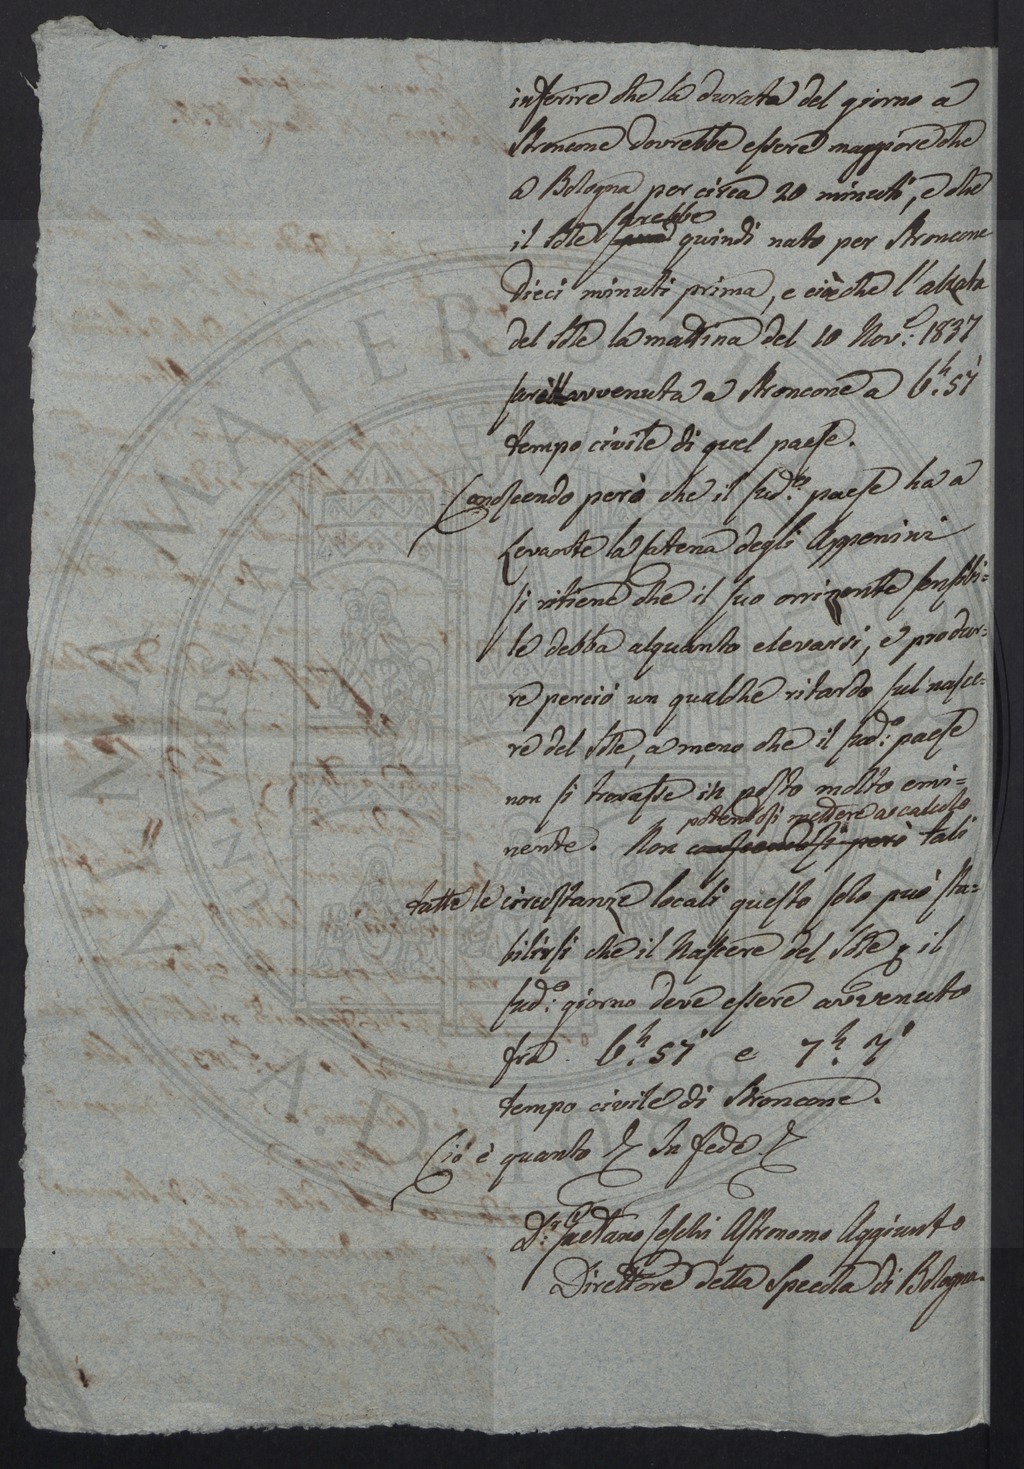 inferire che la durata del giorno a
Stroncone dovrebbe essere maggiore che
a Bologna per circa 20 minuti, e che
il Sole sarebbe quindi nato per Stroncone
Dieci minuti prima, e cioè che l'alzata
del Sole la mattina del 10 Nov.e 1837
sarebbe avvenuta a Stroncone a 6.h 57'
tempo civile di quel paese.
Conoscendo però che il sud.o paese ha a
Levante la Catena degli Appenini
si ritiene che il suo orrizonte sensibi=
le debba alquanto elevarsi, e produr=
re perciò un qualche ritardo sul nasce=
re del Sole, a meno che il sud.o paese
non si trovasse in posto molto emi=
nente. Non potendosi mettere a calcolo
conoscendosi però tali
tutte le circostanze locali questo solo può sta=
bilirsi che il Nascere del Sole p il
sud.o giorno deve essere avvenuto
fra 6.h 57' e 7.h 7'
tempo civile di Stroncone.
Ciò è quanto In fede
D.r Gaetano Ceschi Astronomo Aggiunto
Direttore della Specola di Bologna.
ALMA MATER STUDIORUM
UNIVERSITÀ
A.D. 1088